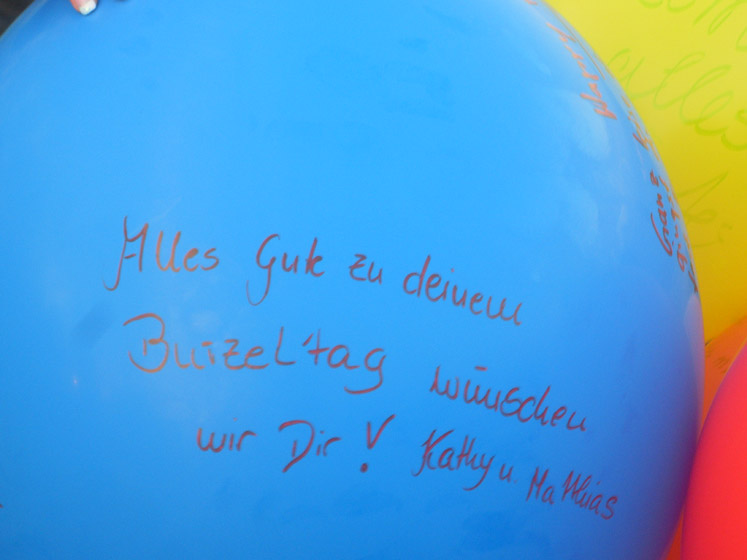 Alles Gute zu deinem
Burzeltag wünschen
wir Dir! Kathy u. Matthias
alles
Ganz